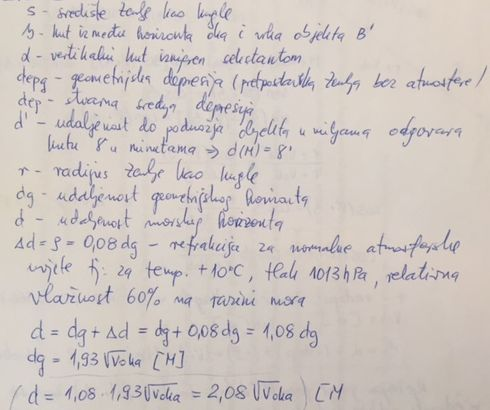 s - središte Zemlje kao kugle
γ - kut između horizonta oka i vrha objekta B'
α - vertikalni kut izmjeren sekstantom
depg - geometrijska depresija (pretpostavka Zemlja bez atmosfere)
dep - stvarna srednja depresija
d' - udaljenost do podnožja objekta u miljama odgovara
kutu δ u minutama ⇒ d(M) = δ'
r - radijus Zemlje kao kugle
dg - udaljenost geometrijskog horizonta
d - udaljenost morskog horizonta
Δd = ρ = 0,08 dg - refrakcija za normalne atmosferske
uvjete tj. za temp. +10°C, tlak 1013 hPa, relativna
vlažnost 60% na razini mora
d = dg + Δd = dg + 0,08 dg = 1,08 dg
dg = 1,93 √Voka [M]
(d = 1,08 · 1,93 √Voka = 2,08 √Voka) [M